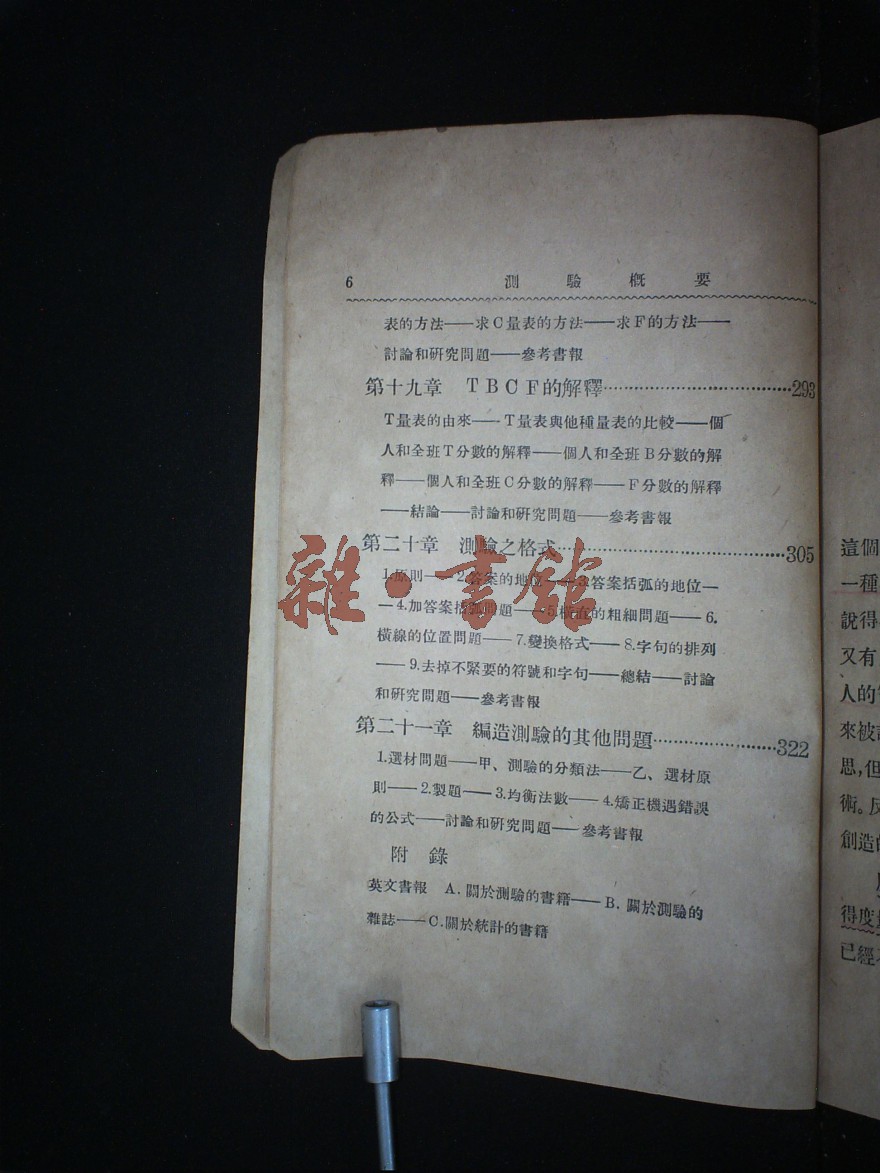 6 測驗概要
表的方法——求C量表的方法——求F的方法——
討論和研究問題——參考書報
第十九章 TBCF的解釋……………………………293
T量表的由來——T量表與他種量表的比較——個
人和全班T分數的解釋——個人和全班B分數的解
釋——個人和全班C分數的解釋——F分數的解釋
——結論——討論和研究問題——參考書報
第二十章 測驗之格式……………………………305
1.原則——2.答案的地位——3.答案括弧的地位—
—4.加答案括弧問題——5.橫直的粗細問題——6.
橫線的位置問題——7.變換格式——8.字句的排列
——9.去掉不緊要的符號和字句——總結——討論
和研究問題——參考書報
第二十一章 編造測驗的其他問題…………………322
1.選材問題——甲、測驗的分類法——乙、選材原
則——2.製題——3.均衡法數——4.矯正機遇錯誤
的公式——討論和研究問題——參考書報
附錄
英文書報 A.關於測驗的書籍——B.關於測驗的
雜誌——C.關於統計的書籍
雜·書館
這個
一種
說得
又有
人的
來被
思,但
術。反
創造的
得度量
已經